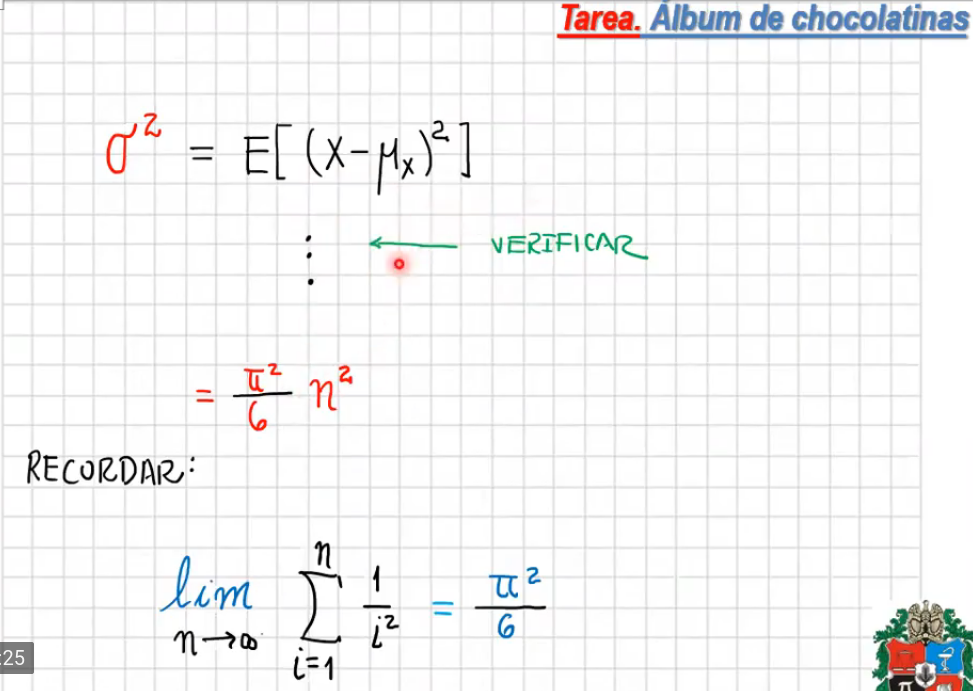 Tarea. Álbum de chocolatinas
σ² = E[(x-μₓ)²]
⋮ ← VERIFICAR
= π²/6 n²
RECORDAR:
lim n→∞ ∑ i=1 n 1/i² = π²/6
:25